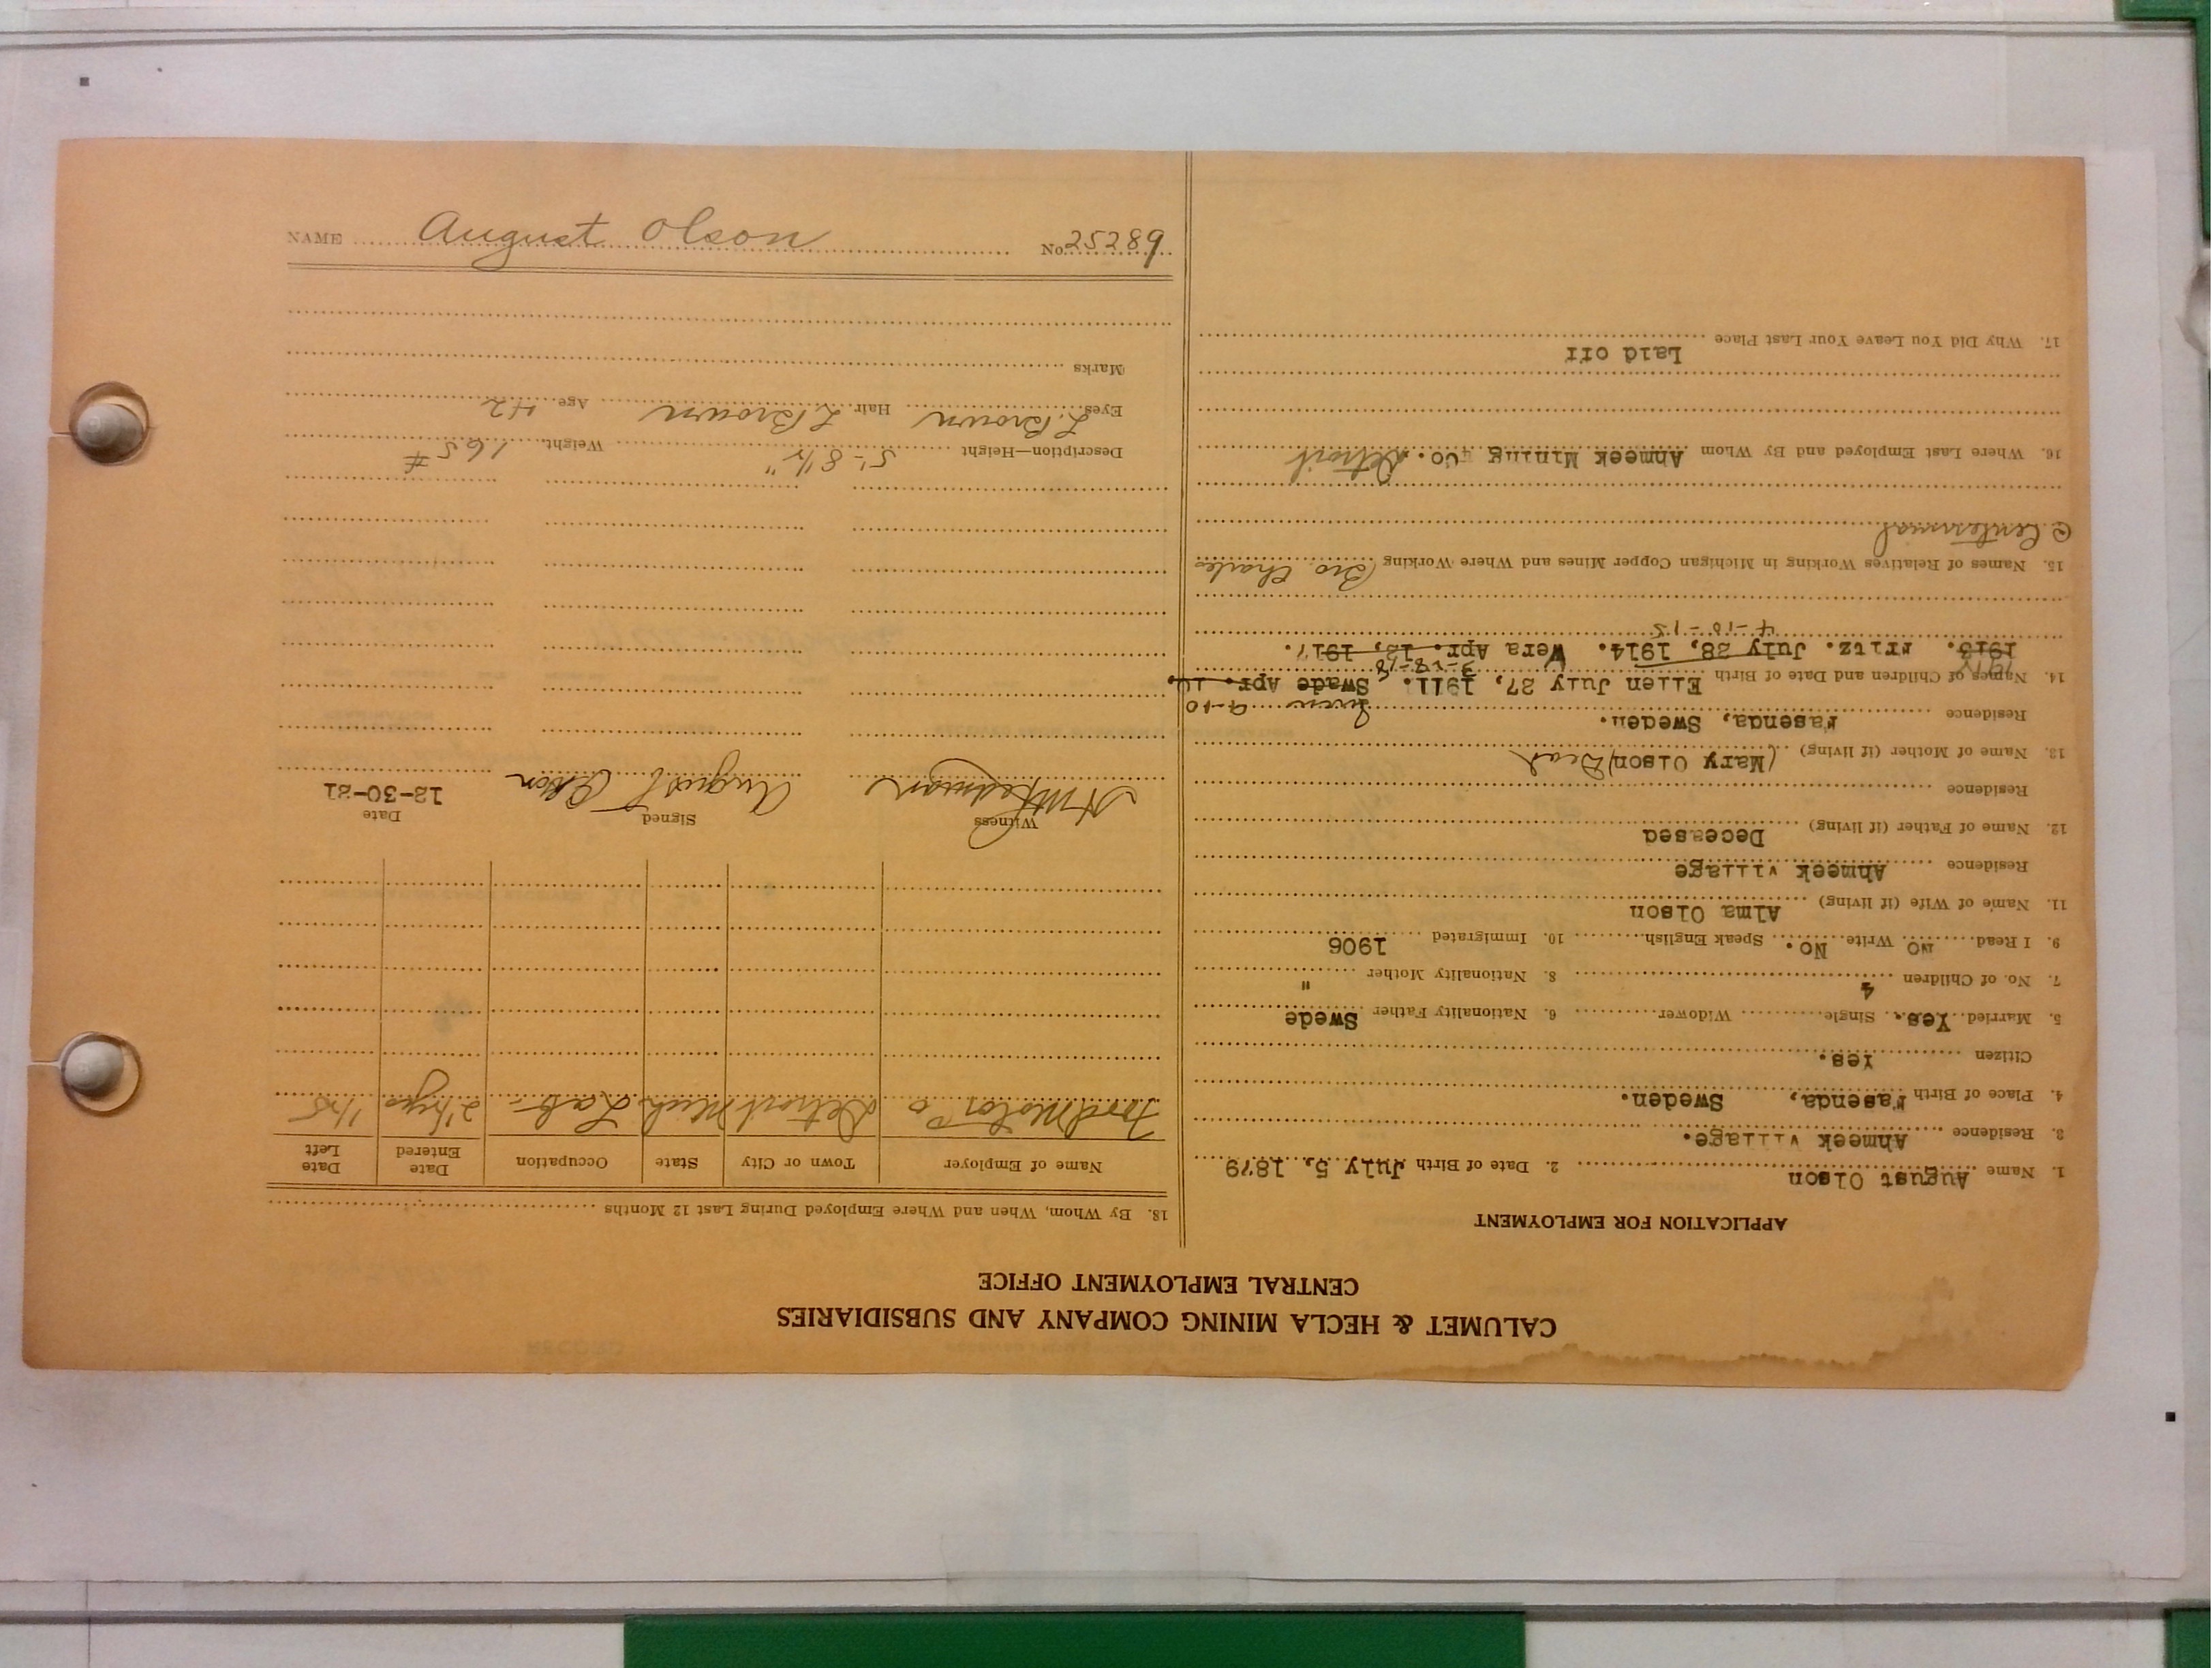 CALUMET & HECLA MINING COMPANY AND SUBSIDIARIES
CENTRAL EMPLOYMENT OFFICE
APPLICATION FOR EMPLOYMENT
1. Name August Olson 2. Date of Birth July 5, 1879
3. Residence Ahmeek Village.
4. Place of Birth Fasenda, Sweden.
Citizen Yes.
5. Married Yes. Single Widower 6. Nationality Father Swede
7. No. of Children 4 8. Nationality Mother "
9. I Read No Write No. Speak English 10. Immigrated 1906
11. Name of Wife (if living) Alma Olson
Residence Ahmeek Village
12. Name of Father (if living) Deceased
Residence
13. Name of Mother (if living) (Mary Olson) Dead
Residence Fasenda, Sweden.
9-10
14. Names of Children and Date of Birth Ellen July 27, 1911. Swade Apr. 14,
1914 3-28-18
1913. Fritz. July 28, 1914. Wera Apr. 12, 1917.
4-10-15
15. Names of Relatives Working in Michigan Copper Mines and Where Working (Bro. Charles
@ Centennial
16. Where Last Employed and By Whom Ahmeek Mining Co. Detroit
17. Why Did You Leave Your Last Place Laid off
18. By Whom, When and Where Employed During Last 12 Months
Name of Employer Town or City State Occupation Date Entered Date Left
Ford Motor Co Detroit Mich Lab- 2½yrs 1/25
Witness Signed Date
August Olson 12-30-21
Description—Height 5'-8½" Weight 165#
Eyes L. Brown Hair L Brown Age 42
Marks
NAME August Olson No. 25289